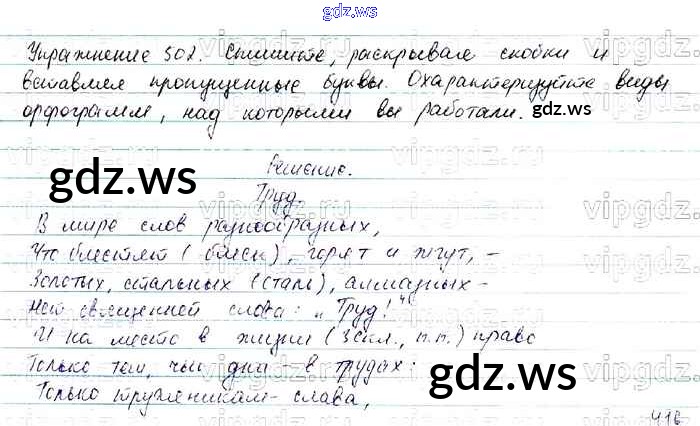 gdz.ws
Упражнение 502. Спишите, раскрывая скобки и
вставляя пропущенные буквы. Охарактеризуйте виды
орфограмм, над которыми вы работали.
gdz.ws
Решение.
gdz.ws
Труд.
В мире слов разнообразных,
Что блестят (блеск), горят и жгут, –
Золотых, стальных (сталь), алмазных –
Нет священней слова: „Труд!“
И на место в жизни (3 скл., п.п.) право
Только тем, чьи дни – в трудах:
Только труженикам – слава,
gdz.ws
gdz.ws
416